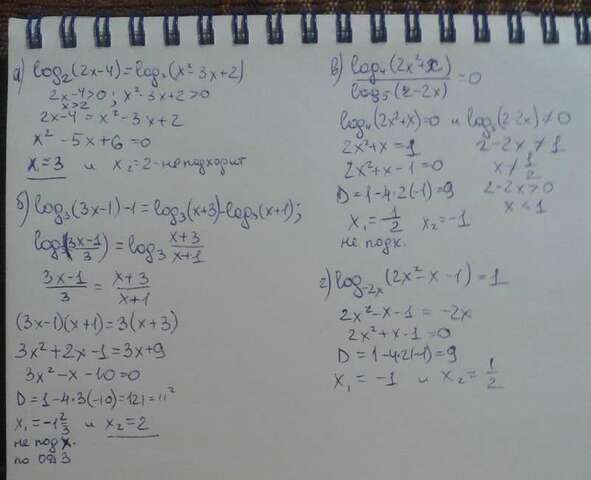 а) log₂(2x-4)=log₂(x²-3x+2)
2x-4>0; x²-3x+2>0
x>2
2x-4=x²-3x+2
x²-5x+6=0
x₁=3 и x₂=2-не подходит
б) log₃(3x-1)-1=log₃(x+3)-log₃(x+1);
log₃(3x-1/3)=log₃ x+3/x+1
3x-1/3 = x+3/x+1
(3x-1)(x+1)=3(x+3)
3x²+2x-1=3x+9
3x²-x-10=0
D=1-4·3(-10)=121=11²
x₁=-1 2/3 и x₂=2
не подх.
по ОДЗ
в) log₄(2x²+x)/log₅(2-2x)=0
log₄(2x²+x)=0 и log₅(2-2x)≠0
2x²+x=1 2-2x≠1
2x²+x-1=0 x≠1/2
D=1-4·2(-1)=9 2-2x>0
x₁=1/2 x₂=-1 x<1
не подх.
г) log₋₂ₓ(2x²-x-1)=1
2x²-x-1=-2x
2x²+x-1=0
D=1-4·2(-1)=9
x₁=-1 и x₂=1/2